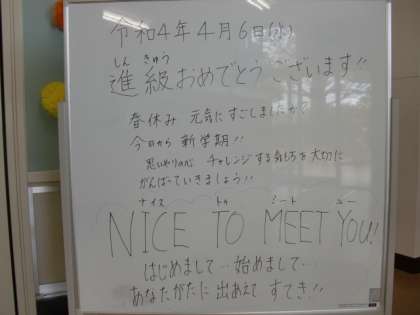 令和4年4月6日(水)
しん きゅう
進級おめでとうございます!!
春休み 元気にすごしましたか?
今日から 新学期!!
思いやりの心 チャレンジする気持ちを大切に
がんばっていきましょう!!
ナイス トゥ ミート ユー
NICE TO MEET YOU!!
はじめまして…始めまして…
あなたがたに 出あえて すてき!!